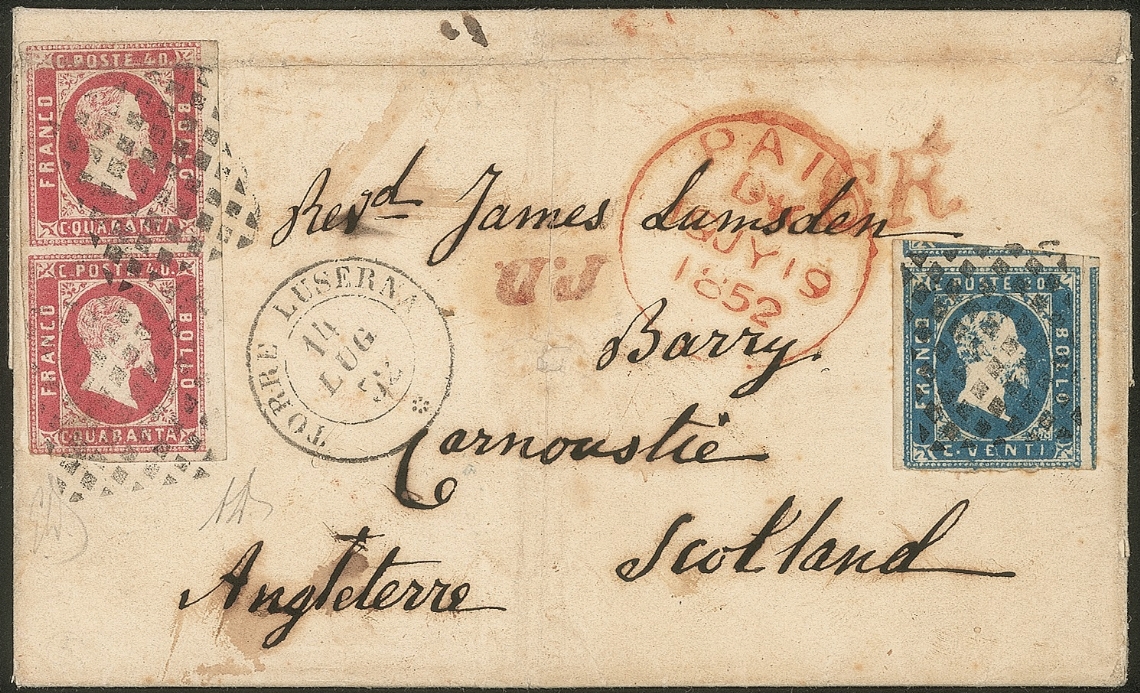 C. POSTE 40.
FRANCO
BOLLO
C.QUARANTA
C. POSTE 40.
FRANCO
BOLLO
C.QUARANTA
PAID
JY 19
1852
Revd James Lumsden
P.D.
TORRE LUSERNA
14
LUG
52
Barry
C. POSTE 20.
FRANCO
BOLLO
C. VENTI
Carnoustie
Scotland
Angleterre